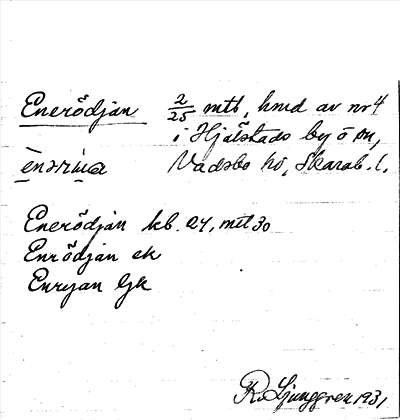 Enerödjan 2/25 mtl, hmd av nr 4
i Hjälstads by o sn,
Vadsbo hd, Skarab. l.
Enerödjan kb. 24, mtl 30
Enrödjan ek
Enryan Gk
R. Ljunggren 1931